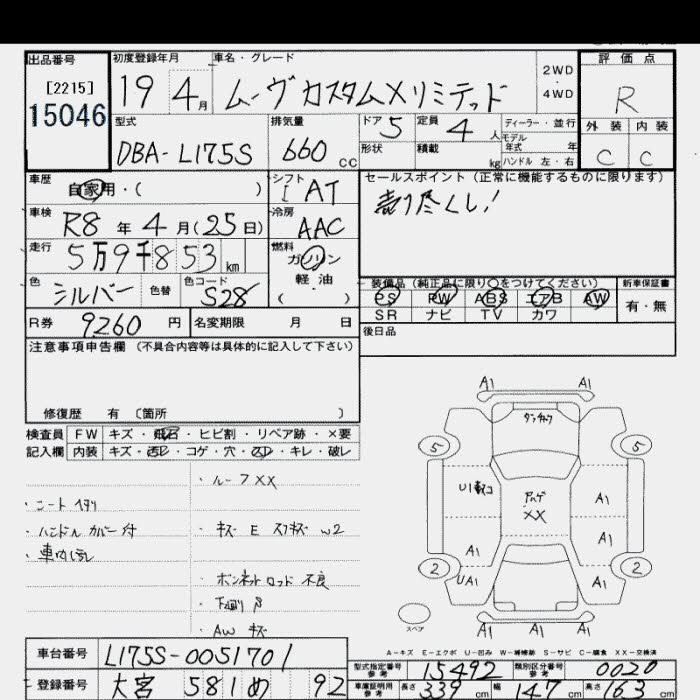 出品番号
[2215]
15046
初度登録年月
19 4月
車名・グレード
ムーヴカスタムXリミテッド
2WD
・
4WD
評価点
R
外装 内装
C C
型式
DBA-L175S
排気量
660 CC
ドア 5
定員 4 人
形状
積載 kg
ディーラー・並行
モデル
年式 年
ハンドル 左・右
車歴
自家用・( )
シフト
I AT
車検
R8年4月(25日)
冷房
AAC
走行
5万9千853 km
燃料
ガソリン
軽油
( )
色
シルバー
色替
色コード
S28
セールスポイント(正常に機能するものに限ります)
売り尽くし!
装備品(純正品に限り○をつけてください)
新車保証書
PS PW ABS エアB AW
有・無
SR ナビ TV カワ
R券
9260 円
名変期限 月 日
後日品
注意事項申告欄(不具合内容等は具体的に記入して下さい)
修復歴 有 〔箇所 〕
検査員 FW キズ・飛石・ヒビ割・リペア跡・×要
記入欄 内装 キズ・汚レ・コゲ・穴・スレ・キレ・破レ
・ルーフXX
・シートヘタリ
・ハンドルカバー付
・キズ E スリキズ W2
・車内汚れ
・ボンネットロッド不良
・下廻りサビ
・AW キズ
A1 A1
5 5
U1
XX
A1
A1 A1
2 2
UA1 A1
スペア
A1 A1 A1
A-キズ E-エクボ U-凹み W-補修跡 S-サビ C-腐食 XX-交換済
車台番号
L175S-0051701
登録番号
大宮 581 め 92
型式指定番号
参考
15492
類別区分番号
参考
0020
車庫証明用
参考
長さ 339 cm
幅 147 cm
高さ 163 cm